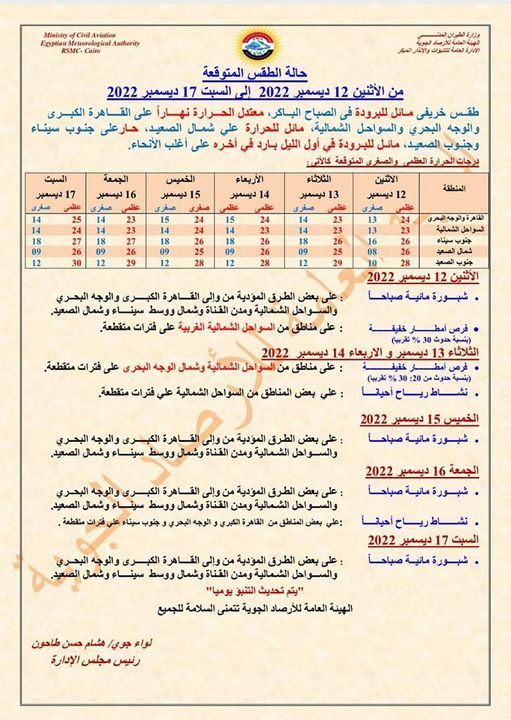 Ministry of Civil Aviation
Egyptian Meteorological Authority
RSMC- Cairo
وزارة الطيران المدنـــي
الهيئة العامة للأرصاد الجوية
الادارة العامة للتنبؤات والإنذار المبكر
حالة الطقس المتوقعة
من الأثنين 12 ديسمبر 2022 إلى السبت 17 ديسمبر 2022
طقس خريفى مائل للبرودة فى الصباح الباكر، معتدل الحرارة نهاراً على القاهرة الكبرى
والوجه البحري والسواحل الشمالية، مائل للحرارة علي شمال الصعيد، حار على جنوب سيناء
وجنوب الصعيد، مائل للبرودة في أول الليل بارد في أخره على أغلب الأنحاء.
درجات الحرارة العظمي والصغري المتوقعة كالآتي:
المنطقة الأثنين 12 ديسمبر الثلاثاء 13 ديسمبر الأربعاء 14 ديسمبر الخميس 15 ديسمبر الجمعة 16 ديسمبر السبت 17 ديسمبر
عظمى صغرى عظمى صغرى عظمى صغرى عظمى صغرى عظمى صغرى عظمى صغرى
القاهرة والوجه البحري 24 13 23 14 24 15 24 15 23 14 25 14
السواحل الشمالية 23 14 23 14 23 15 23 14 23 14 24 14
جنوب سيناء 26 16 26 16 26 17 26 18 27 18 27 18
شمال الصعيد 26 10 26 09 26 09 25 09 26 09 26 09
جنوب الصعيد 28 10 29 12 28 12 28 12 29 12 30 12
الأثنين 12 ديسمبر 2022
شبورة مائية صباحاً : على بعض الطرق المؤدية من وإلى القاهرة الكبرى والوجه البحري
والسواحل الشمالية ومدن القناة وشمال ووسط سيناء وشمال الصعيد.
فرص أمطار خفيفة : على مناطق من السواحل الشمالية الغربية على فترات متقطعة.
(بنسبة حدوث 30 % تقريبا)
الثلاثاء 13 ديسمبر و الاربعاء 14 ديسمبر 2022
فرص أمطار خفيفة : على مناطق من السواحل الشمالية وشمال الوجه البحرى على فترات متقطعة.
(بنسبة حدوث من 20: 30 % تقريبا)
نشاط رياح أحياناً : على بعض المناطق من السواحل الشمالية علي فترات متقطعة.
الخميس 15 ديسمبر 2022
شبورة مائية صباحاً : على بعض الطرق المؤدية من وإلى القاهرة الكبرى والوجه البحري
والسواحل الشمالية ومدن القناة وشمال ووسط سيناء وشمال الصعيد.
الجمعة 16 ديسمبر 2022
شبورة مائية صباحاً : على بعض الطرق المؤدية من وإلى القاهرة الكبرى والوجه البحري
والسواحل الشمالية ومدن القناة وشمال ووسط سيناء وشمال الصعيد.
نشاط رياح أحياناً : على بعض المناطق من القاهرة الكبري و الوجه البحري و جنوب سيناء علي فترات متقطعة .
السبت 17 ديسمبر 2022
شبورة مائية صباحاً : على بعض الطرق المؤدية من وإلى القاهرة الكبرى والوجه البحري
والسواحل الشمالية ومدن القناة وشمال ووسط سيناء وشمال الصعيد.
"يتم تحديث التنبؤ يوميا"
الهيئة العامة للأرصاد الجوية تتمنى السلامة للجميع
لواء جوي/ هشام حسن طاحون
رئيس مجلس الإدارة
الهيئة العامة للأرصاد الجوية